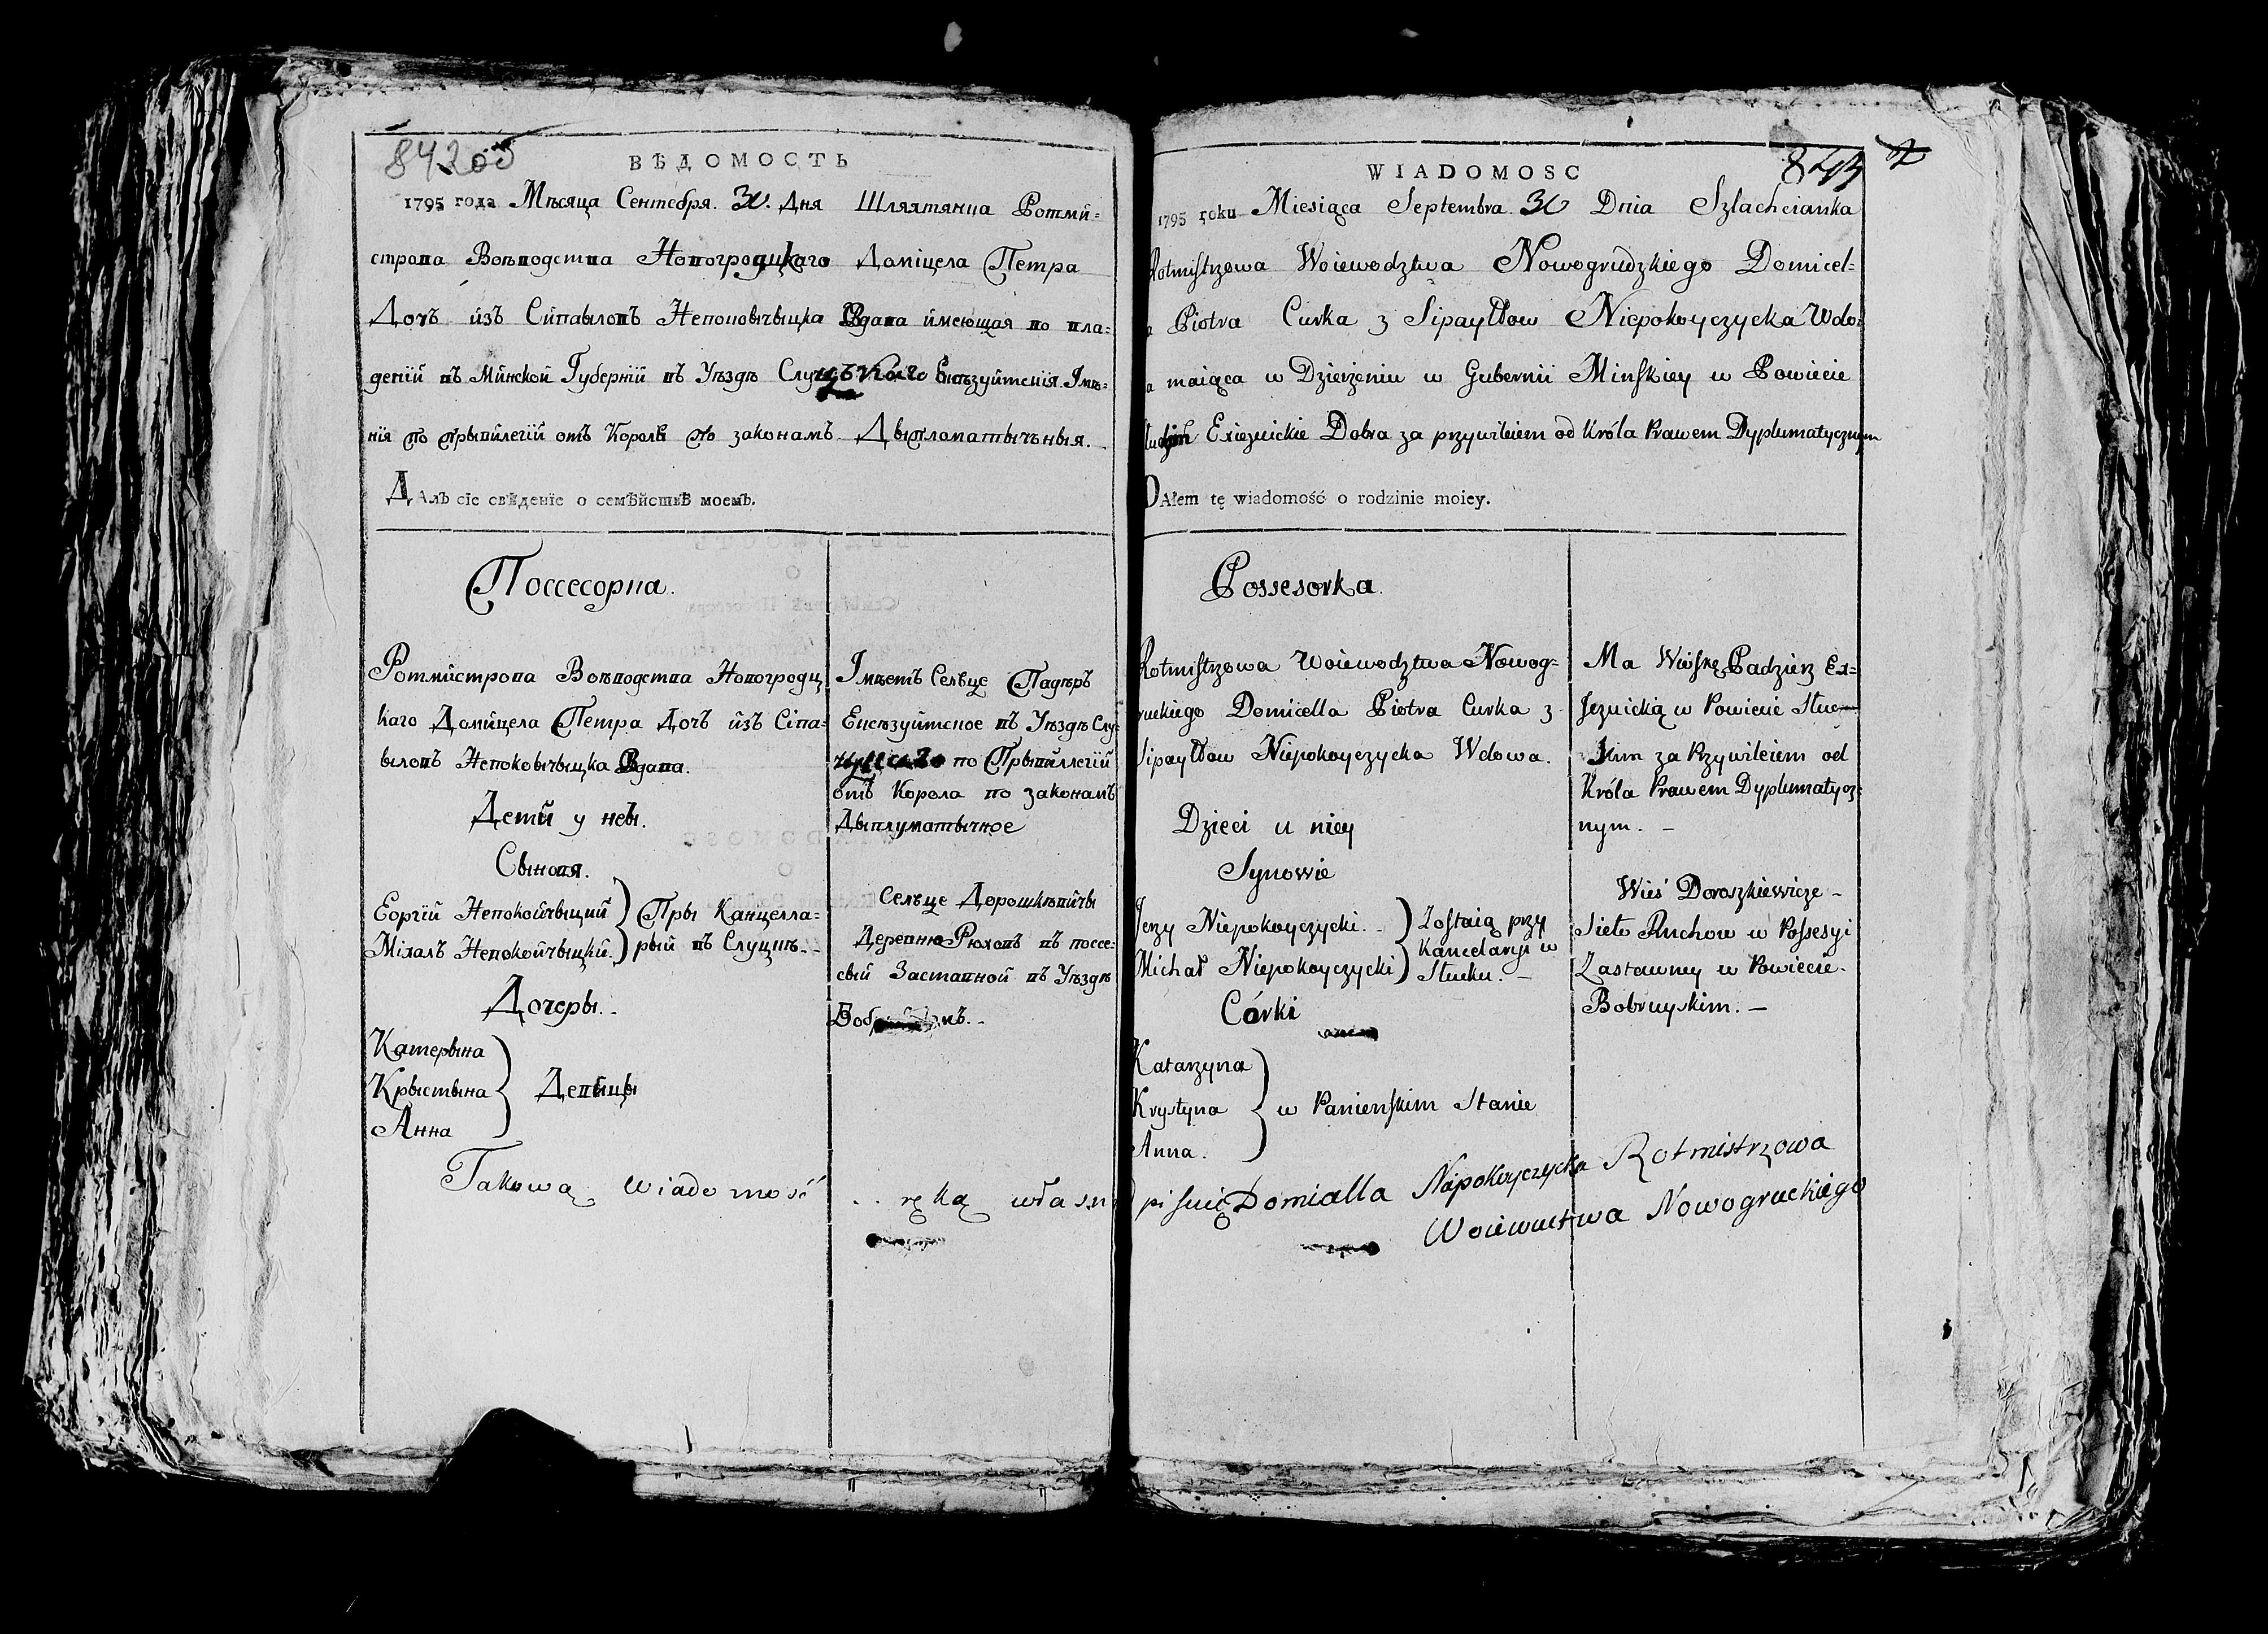 842 об
ВѢДОМОСТЬ
1795 года Мѣсяца Сентебря. 30. Дня Шляхтянца Ротми=
строва Воѣводства Новогродцкаго Доміцела Петра
Дочъ изъ Сипаыловъ Непокоычыцка Вдава имеющая во вла=
дении въ Минской Губернии въ Уѣздѣ Слуцкаго Ексѣзуитскія Імѣ=
нія По Прывилегии отъ Короля По законамъ Дыпломатычъныя.
ДАлъ сїе свѣденїе о семѣйствѣ моемъ.
Поссесорка.
Ротмистрова Воѣводства Новогродц
каго Домицела Петра Дочъ изъ Сіпа=
ыловъ Непокоычыцка Вдава.
Дети у неы.
Сыновя.
Еоргий Непокойчыцкий } Пры Канцелла=
Міхалъ Непокойчыцки. } рыи въ Слуцкѣ.
Дочеры.
Катерына
Крыстына } Девицы
Анна
Імѣетъ Сельце Падѣръ
Ексѣзуитское въ Уѣздѣ Слу=
по Прывиллегии
отъ Корола по законамъ
Дыплуматычное
Сельце Дорошкѣвичы
Деревню Рюховъ въ поссе=
сыи Заставной въ Уѣздѣ
Takową wiadomość ręką własną
WIADOMOSC
1795 roku Miesiąca Septembra. 30 Dnia Szlachcianka
Rotmistrzowa Woiewodztwa Nowogrudzkiego Domicel=
a Piotra Curka z Sipayłłow Niepokoyczycka Wdo=
a maiąca w Dzierżeniu w Gubernii Minskiey w Powiecie
Exieznickie Dobra za przywileiem od Króla Prawem Dyplumatycznym
DAłem tę wiadomość o rodzinie moiey.
Possesorka.
Rotmistrzowa Woiewodztwa Nowog=
ruckiego Domicella Piotra Curka z
Sipayłłow Niepokoyczycka Wdowa.
Dzieci u niey
Synowie
Jerzy Niepokoyczycki. } Zostaią przy
Kancelaryi w
Michał Niepokoyczycki } Słucku. -
Córki
Katarzyna
Krystyna } w Panienskim Stanie
Anna.
Ma Wioskę Padzierz Ex=
Jeznicką w Powiecie Słuc=
kim za Przywileiem od
Króla Prawem Dyplumatycz=
nym. -
Wieś Doroszkiewicze -
Sieło Ruchow w Possesyi
Zastawney w Powiecie
Bobruyskim. -
pisuię Domicella Niepokoyczycka Rotmistrzowa
Woiewuctwa Nowogruckiego